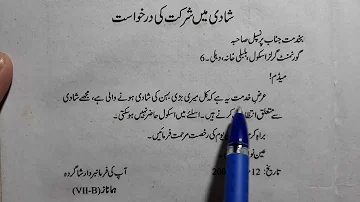 شادی میں شرکت کی درخواست
بخدمت جناب پرنسپل صاحبہ
گورنمنٹ گرلز اسکول، بلبلی خانہ، دہلی۔ 6
میڈم!
عرض خدمت یہ ہے کہ کل میری بڑی بہن کی شادی ہونے والی ہے، مجھے شادی
سے متعلق کرنے ہیں۔ اسلئے میں اسکول حاضر نہیں ہوسکتی۔
براہ یوم کی رخصت مرحمت فرمائیں۔
عین
تاریخ: 12 آپ کی فرمانبردار شاگردہ
ہما ناز (VII-B)